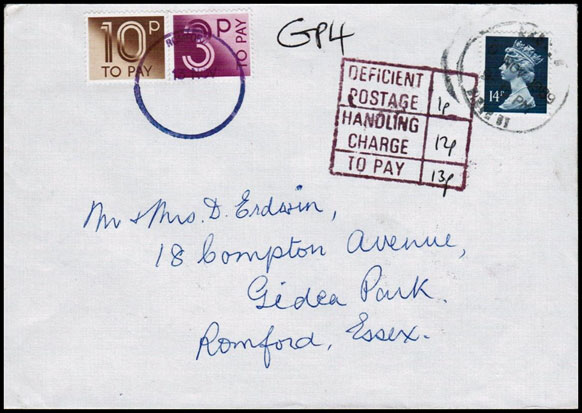 10P
TO PAY
3P
TO PAY
GP4
DEFICIENT
POSTAGE 1p
HANDLING
CHARGE 12p
TO PAY 13p
14P
PM
Mr & Mrs. D. Erdwin,
18 Compton Avenue,
Gidea Park.
Romford, Essex.